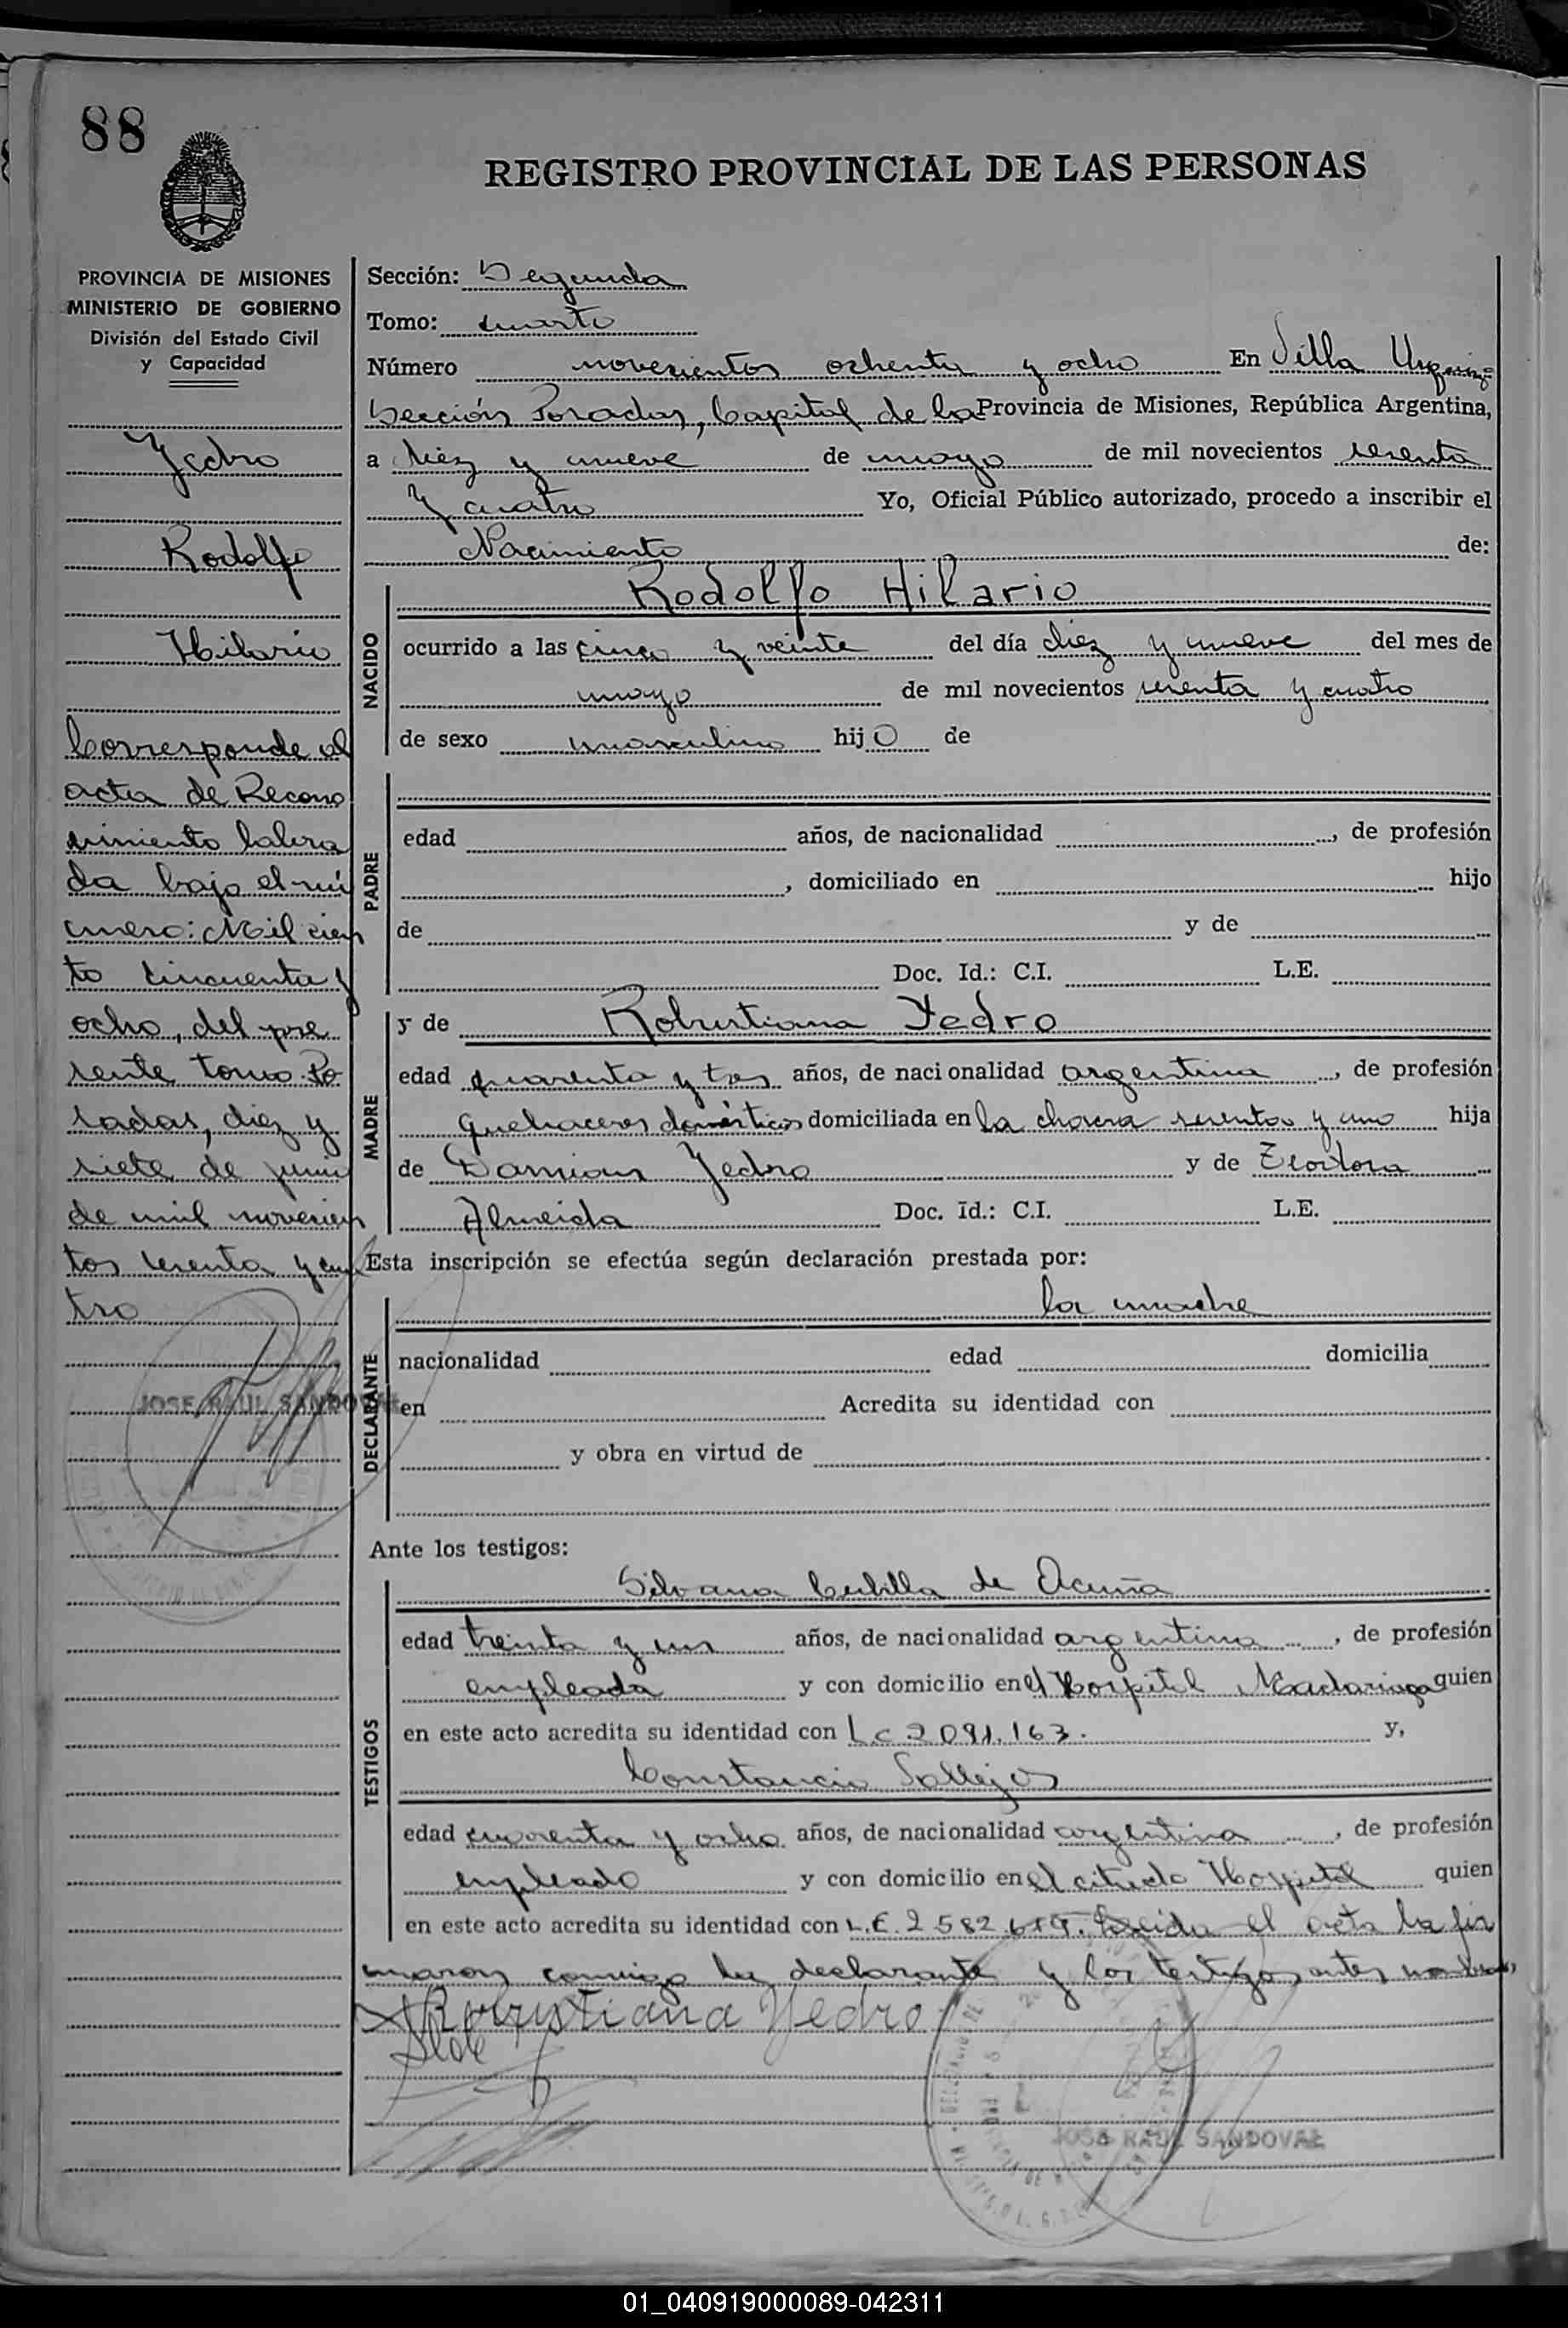 88
REGISTRO PROVINCIAL DE LAS PERSONAS
PROVINCIA DE MISIONES
MINISTERIO DE GOBIERNO
División del Estado Civil
y Capacidad
Yedro
Rodolfo
Hilario
Corresponde al
acta de Recono
cimiento labra
da bajo el nú
mero: Mil cien
to cincuenta y
ocho, del pre
sente tomo. Po
sadas, diez y
siete de junio
de mil novecien
tos sesenta y cua
tro
JOSE RAUL SANDOVAL
Sección: Segunda
Tomo: cuarto
Número novecientos ochenta y ocho En Villa Urquiza
Sección Posadas, Capital de la Provincia de Misiones, República Argentina,
a diez y nueve de mayo de mil novecientos sesenta
y cuatro Yo, Oficial Público autorizado, procedo a inscribir el
Nacimiento de:
NACIDO
Rodolfo Hilario
ocurrido a las cinco y veinte del día diez y nueve del mes de
mayo de mil novecientos sesenta y cuatro
de sexo masculino hijo de
PADRE
edad años, de nacionalidad , de profesión
, domiciliado en hijo
de y de
Doc. Id.: C.I. L.E.
MADRE
y de Robustiana Yedro
edad cuarenta y tres años, de nacionalidad argentina , de profesión
quehaceres domésticos domiciliada en la chacra sesenta y uno hija
de Damian Yedro y de Teodora
Almeida Doc. Id.: C.I. L.E.
Esta inscripción se efectúa según declaración prestada por:
DECLARANTE
la madre
nacionalidad edad domicilia
en Acredita su identidad con
y obra en virtud de
Ante los testigos:
TESTIGOS
Silvana de Acuña
edad treinta y un años, de nacionalidad argentina , de profesión
empleada y con domicilio en el Hospital Madariaga quien
en este acto acredita su identidad con Lc 2 091.163. y,
Constancio Vallejos
edad cuarenta y ocho años, de nacionalidad argentina , de profesión
empleado y con domicilio en el citado Hospital quien
en este acto acredita su identidad con L.E. 2 582 Leida el acta la fir
maron conmigo la declarante y los testigos antes
Robustiana Yedro
JOSE RAUL SANDOVAL
01_040919000089-042311